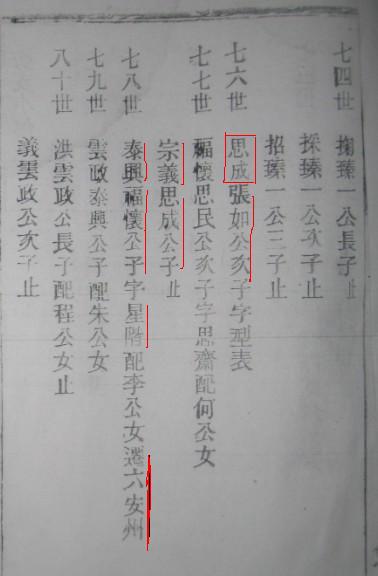 七四世 掬臻一公長子止
採臻一公次子止
招臻一公三子止
七六世 思成張如公次子字型表
七七世 福懷思民公次子字思齋配何公女
宗義思成公子止
七八世 泰興福懷公子字星階配李公女遷六安州
七九世 雲政泰興公子配朱公女
八十世 洪雲政公長子配程公女止
義雲政公次子止